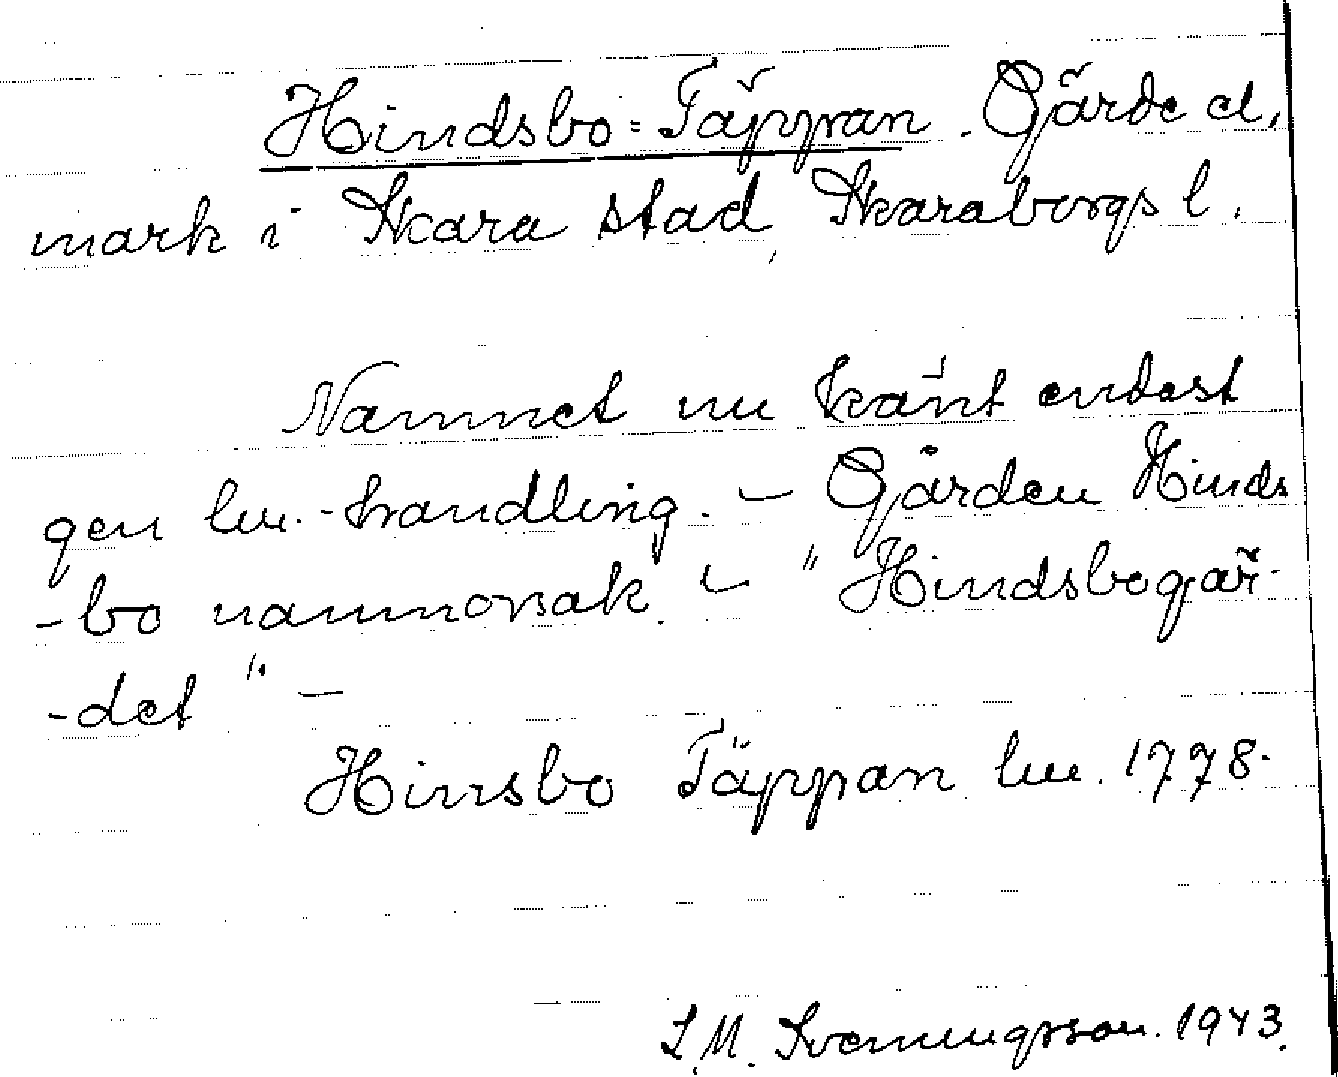 Hindsbo=Täppan. Gärde el.
mark i Skara stad, Skaraborgs l.
Namnet nu känt endast
gen lm.-handling. - Gården Hinds
-bo namnorsak. - "Hindsbogär-
-det" -
Hinsbo Täppan lm. 1778.
L.M. Svenungsson. 1943.